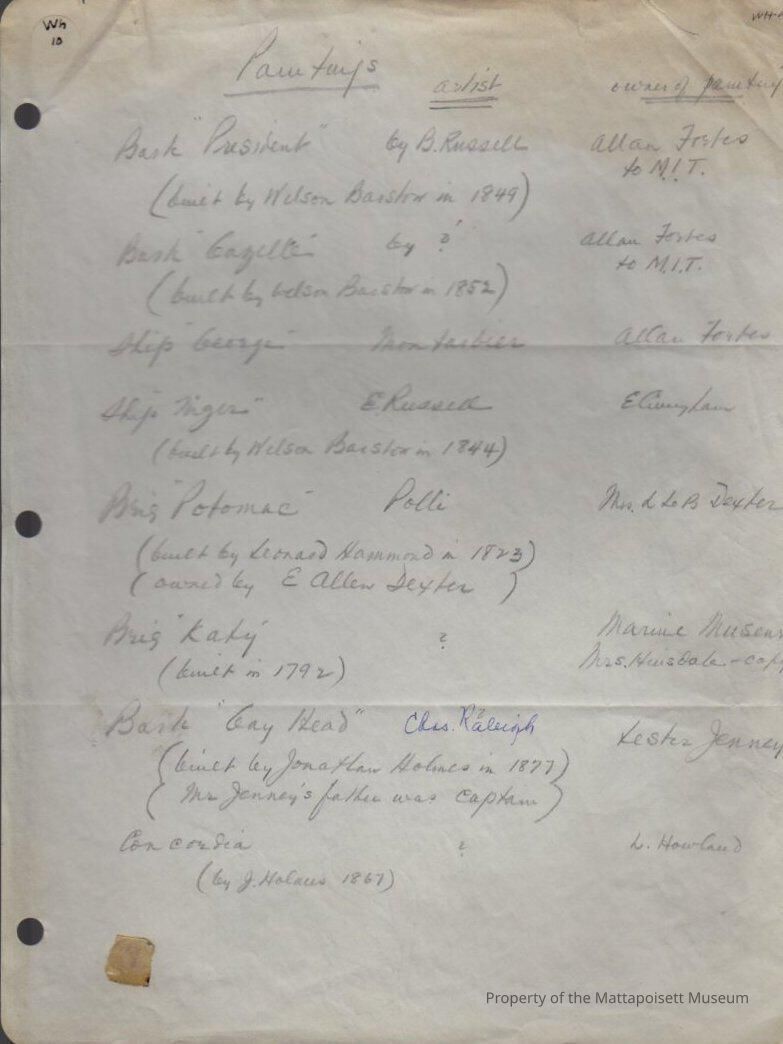 Wh
10
WH-
Paintings artist owner of painting
Bark "President" by B. Russell Allan Forbes
to M.I.T.
(built by Wilson Barstow in 1849)
Bark "Gazelle" by ? Allan Forbes
to M.I.T.
(built by Wilson Barstow in 1852)
Ship "George" Montardier Allan Forbes
Ship "Niger" E Russell
(built by Wilson Barstow in 1844)
Brig "Potomac" Polli Mrs. L LeB Dexter
(built by Leonard Hammond in 1823)
(owned by E Allen Dexter)
Brig "Katy" ? Marine Museum
Mrs. Hinsdale - copy
(built in 1792)
Bark "Gay Head" Chas. Raleigh ? Lester Jenney
(built by Jonathan Holmes in 1877)
(Mr Jenney's father was captain)
Concordia ? L. Howland
(by J. Holmes 1867)
Property of the Mattapoisett Museum